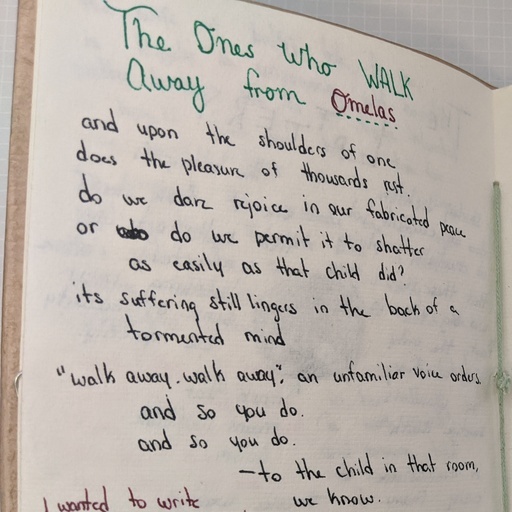 The Ones who WALK
Away from Omelas
and upon the shoulders of one
does the pleasure of thousands rest.
do we dare rejoice in our fabricated peace
or do we permit it to shatter
as easily as that child did?
its suffering still lingers in the back of a
tormented mind
"walk away. walk away", an unfamiliar voice orders.
and so you do.
and so you do.
—to the child in that room,
we know.
I wanted to write